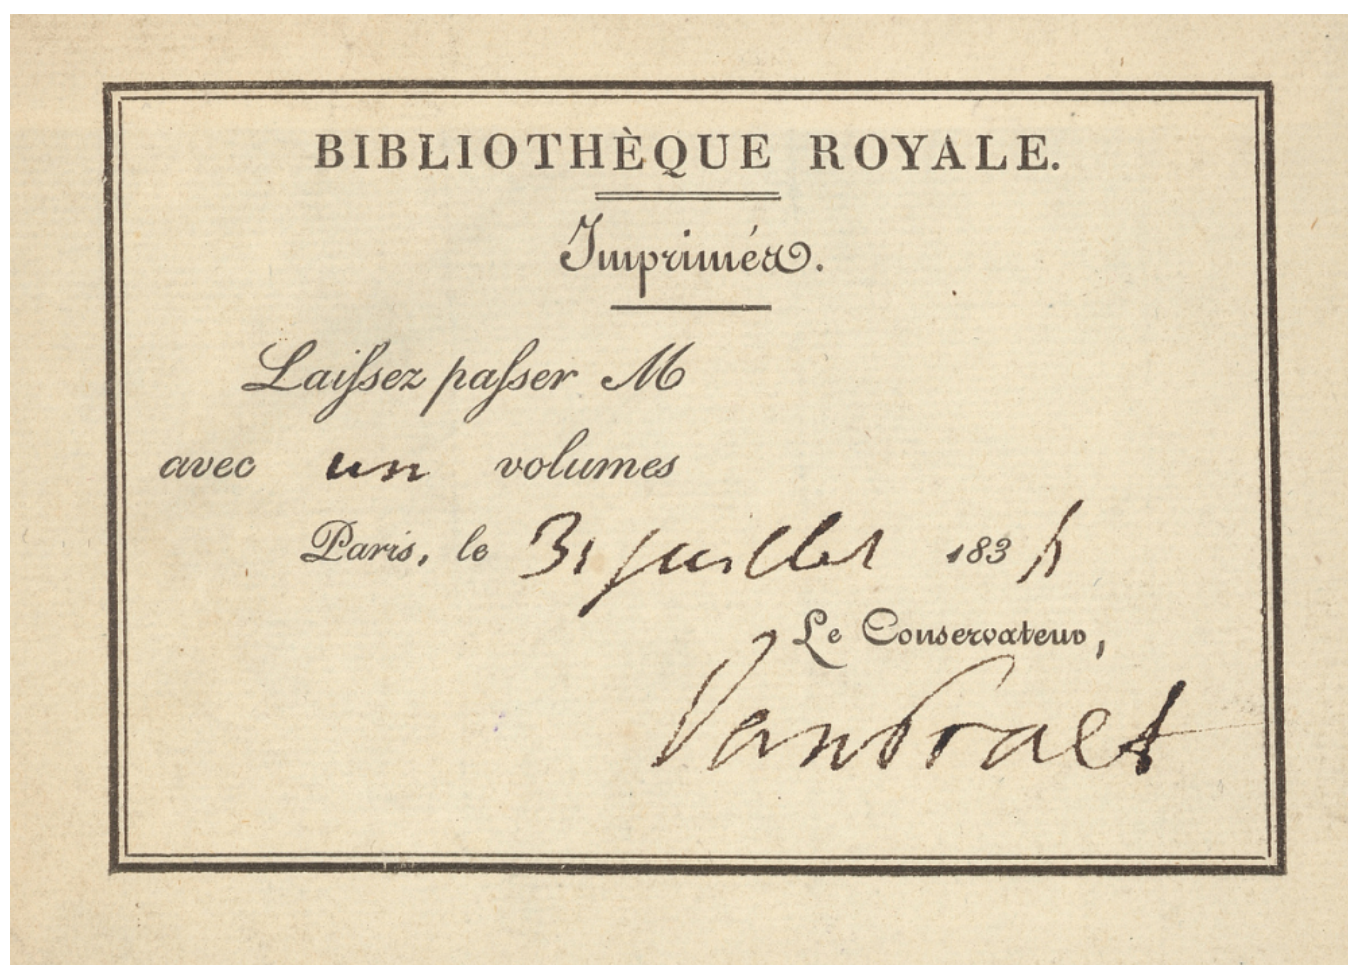 BIBLIOTHÈQUE ROYALE.
Imprimés.
Laissez passer M
avec un volumes
Paris, le 31 juillet 183
Le Conservateur,
Van Praet